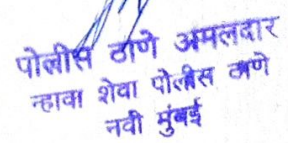 पोलीस ठाणे अंमलदार
न्हावा शेवा पोलीस ठाणे
नवी मुंबई